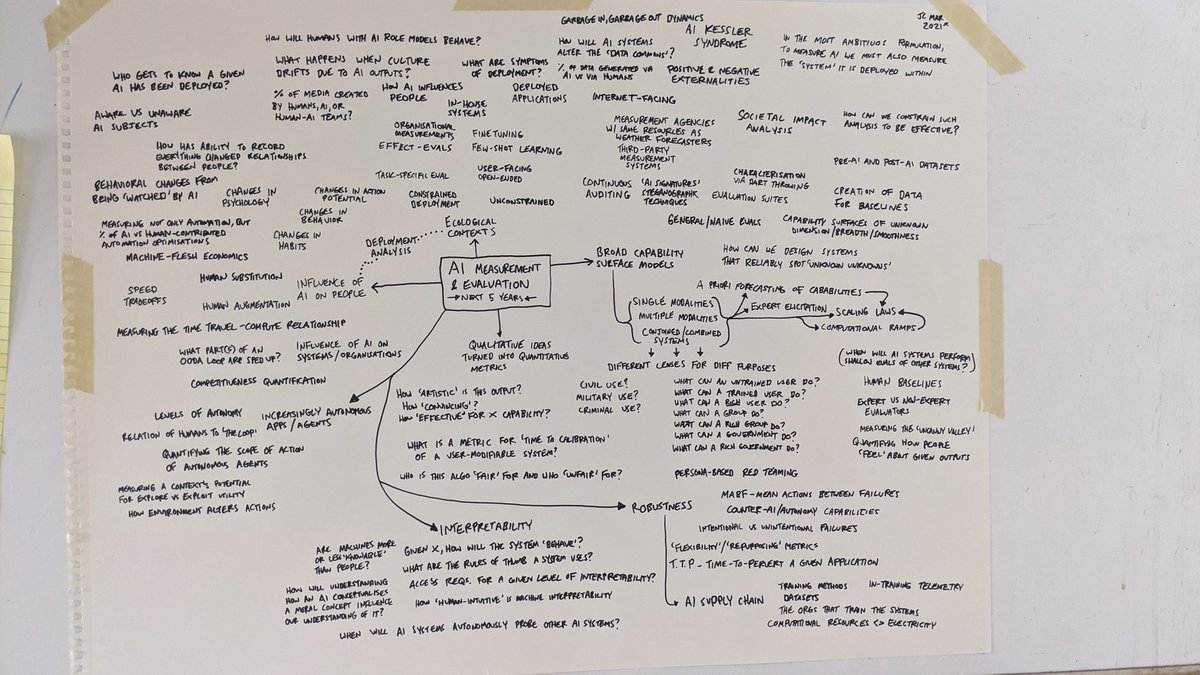 GARBAGE IN, GARBAGE OUT DYNAMICS
JC MAR
2021
AI KESSLER
SYNDROME
HOW WILL HUMANS WITH AI ROLE MODELS BEHAVE?
HOW WILL AI SYSTEMS
ALTER THE 'DATA COMMONS'?
% OF DATA GENERATED VIA
AI VS VIA HUMANS
POSITIVE & NEGATIVE
EXTERNALITIES
IN THE MOST AMBITIOUS FORMULATION,
TO MEASURE AI WE MUST ALSO MEASURE
THE 'SYSTEM' IT IS DEPLOYED WITHIN
WHO GETS TO KNOW A GIVEN
AI HAS BEEN DEPLOYED?
WHAT HAPPENS WHEN CULTURE
DRIFTS DUE TO AI OUTPUTS?
WHAT ARE SYMPTOMS
OF DEPLOYMENT?
% OF MEDIA CREATED
BY HUMANS, AI, OR
HUMAN-AI TEAMS?
HOW AI INFLUENCES
PEOPLE
IN-HOUSE
SYSTEMS
DEPLOYED
APPLICATIONS
INTERNET-FACING
AWARE VS UNAWARE
AI SUBJECTS
ORGANISATIONAL
MEASUREMENTS
EFFECT-EVALS
FINETUNING
FEW-SHOT LEARNING
MEASUREMENT AGENCIES
W/ SAME RESOURCES AS
WEATHER FORECASTERS
THIRD-PARTY
MEASUREMENT
SYSTEMS
SOCIETAL IMPACT
ANALYSIS
HOW CAN WE CONSTRAIN SUCH
ANALYSIS TO BE EFFECTIVE?
HOW HAS ABILITY TO RECORD
EVERYTHING CHANGED RELATIONSHIPS
BETWEEN PEOPLE?
TASK-SPECIFIC EVAL
USER-FACING
OPEN-ENDED
PRE-AI AND POST-AI DATASETS
BEHAVIORAL CHANGES FROM
BEING 'WATCHED' BY AI
CHANGES IN
PSYCHOLOGY
CHANGES IN ACTION
POTENTIAL
CONSTRAINED
DEPLOYMENT
UNCONSTRAINED
CONTINUOUS
AUDITING
'AI SIGNATURES'
STEGANOGRAPHIC
TECHNIQUES
CHARACTERISATION
VIA DART THROWING
EVALUATION SUITES
CREATION OF DATA
FOR BASELINES
CHANGES IN
BEHAVIOR
CHANGES IN
HABITS
MEASURING NOT ONLY AUTOMATION, BUT
% OF AI VS HUMAN-CONTRIBUTED
AUTOMATION OPTIMISATIONS
ECOLOGICAL
CONTEXTS
DEPLOYMENT
ANALYSIS
GENERAL/NAIVE EVALS
CAPABILITY SURFACES OF UNKNOWN
DIMENSION/BREADTH/SMOOTHNESS
MACHINE-FLESH ECONOMICS
AI MEASUREMENT
& EVALUATION
NEXT 5 YEARS
BROAD CAPABILITY
SURFACE MODELS
HOW CAN WE DESIGN SYSTEMS
THAT RELIABLY SPOT 'UNKNOWN UNKNOWNS'
SPEED
TRADEOFFS
HUMAN SUBSTITUTION
HUMAN AUGMENTATION
INFLUENCE OF
AI ON PEOPLE
A PRIORI FORECASTING OF CAPABILITIES
EXPERT ELICITATION
SCALING LAWS
COMPUTATIONAL RAMPS
SINGLE MODALITIES
MULTIPLE MODALITIES
CONJOINED/COMBINED
SYSTEMS
MEASURING THE TIME TRAVEL-COMPUTE RELATIONSHIP
WHAT PART(S) OF AN
OODA LOOP ARE SPED UP?
INFLUENCE OF AI ON
SYSTEMS/ORGANISATIONS
QUALITATIVE IDEAS
TURNED INTO QUANTITATIVE
METRICS
DIFFERENT LENSES FOR DIFF PURPOSES
(WHEN WILL AI SYSTEMS PERFORM
SHALLOW EVALS OF OTHER SYSTEMS?)
COMPETITIVENESS QUANTIFICATION
CIVIL USE?
MILITARY USE?
CRIMINAL USE?
WHAT CAN AN UNTRAINED USER DO?
WHAT CAN A TRAINED USER DO?
WHAT CAN A RICH USER DO?
WHAT CAN A GROUP DO?
WHAT CAN A RICH GROUP DO?
WHAT CAN A GOVERNMENT DO?
WHAT CAN A RICH GOVERNMENT DO?
HUMAN BASELINES
EXPERT VS NON-EXPERT
EVALUATORS
MEASURING THE 'UNCANNY VALLEY'
QUANTIFYING HOW PEOPLE
'FEEL' ABOUT GIVEN OUTPUTS
LEVELS OF AUTONOMY
INCREASINGLY AUTONOMOUS
APPS/AGENTS
HOW 'ARTISTIC' IS THIS OUTPUT?
HOW 'CONVINCING'?
HOW 'EFFECTIVE' FOR X CAPABILITY?
RELATION OF HUMANS TO 'THE LOOP'
QUANTIFYING THE SCOPE OF ACTION
OF AUTONOMOUS AGENTS
WHAT IS A METRIC FOR 'TIME TO CALIBRATION'
OF A USER-MODIFIABLE SYSTEM?
MEASURING A CONTEXT'S POTENTIAL
FOR EXPLORE VS EXPLOIT UTILITY
HOW ENVIRONMENT ALTERS ACTIONS
WHO IS THIS ALGO 'FAIR' FOR AND WHO 'UNFAIR' FOR?
PERSONA-BASED RED TEAMING
ROBUSTNESS
MABF-MEAN ACTIONS BETWEEN FAILURES
COUNTER-AI/AUTONOMY CAPABILITIES
INTENTIONAL VS UNINTENTIONAL FAILURES
'FLEXIBILITY'/'REPURPOSING' METRICS
T.T.P - TIME-TO-PERVERT A GIVEN APPLICATION
INTERPRETABILITY
ARE MACHINES MORE
OR LESS 'KNOWABLE'
THAN PEOPLE?
GIVEN X, HOW WILL THE SYSTEM 'BEHAVE'?
WHAT ARE THE RULES OF THUMB A SYSTEM USES?
ACCESS REQS. FOR A GIVEN LEVEL OF INTERPRETABILITY?
HOW 'HUMAN-INTUITIVE' IS MACHINE INTERPRETABILITY
HOW WILL UNDERSTANDING
HOW AN AI CONCEPTUALISES
A MORAL CONCEPT INFLUENCE
OUR UNDERSTANDING OF IT?
WHEN WILL AI SYSTEMS AUTONOMOUSLY PROBE OTHER AI SYSTEMS?
AI SUPPLY CHAIN
TRAINING METHODS
IN-TRAINING TELEMETRY
DATASETS
THE ORGS THAT TRAIN THE SYSTEMS
COMPUTATIONAL RESOURCES <> ELECTRICITY